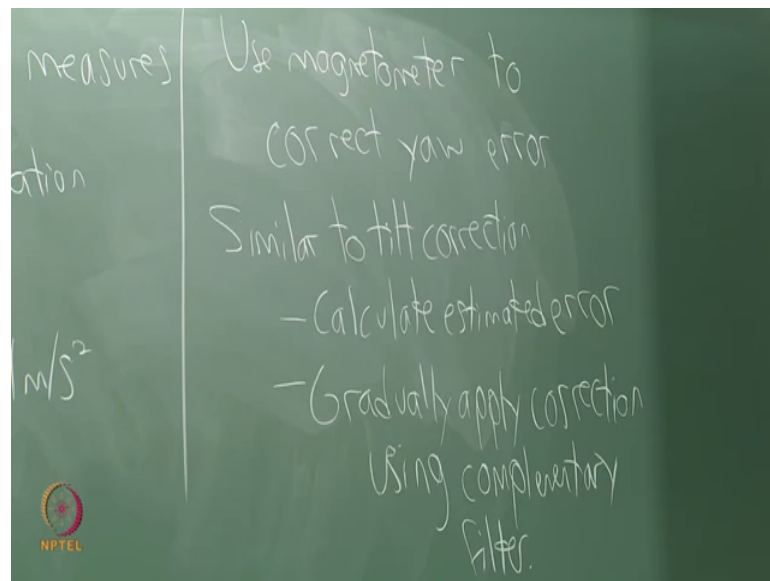 measures
ation
m/s²
Use magnetometer to
correct yaw error
Similar to tilt correction
- Calculate estimated error
- Gradually apply correction
using complementary
filter.
NPTEL